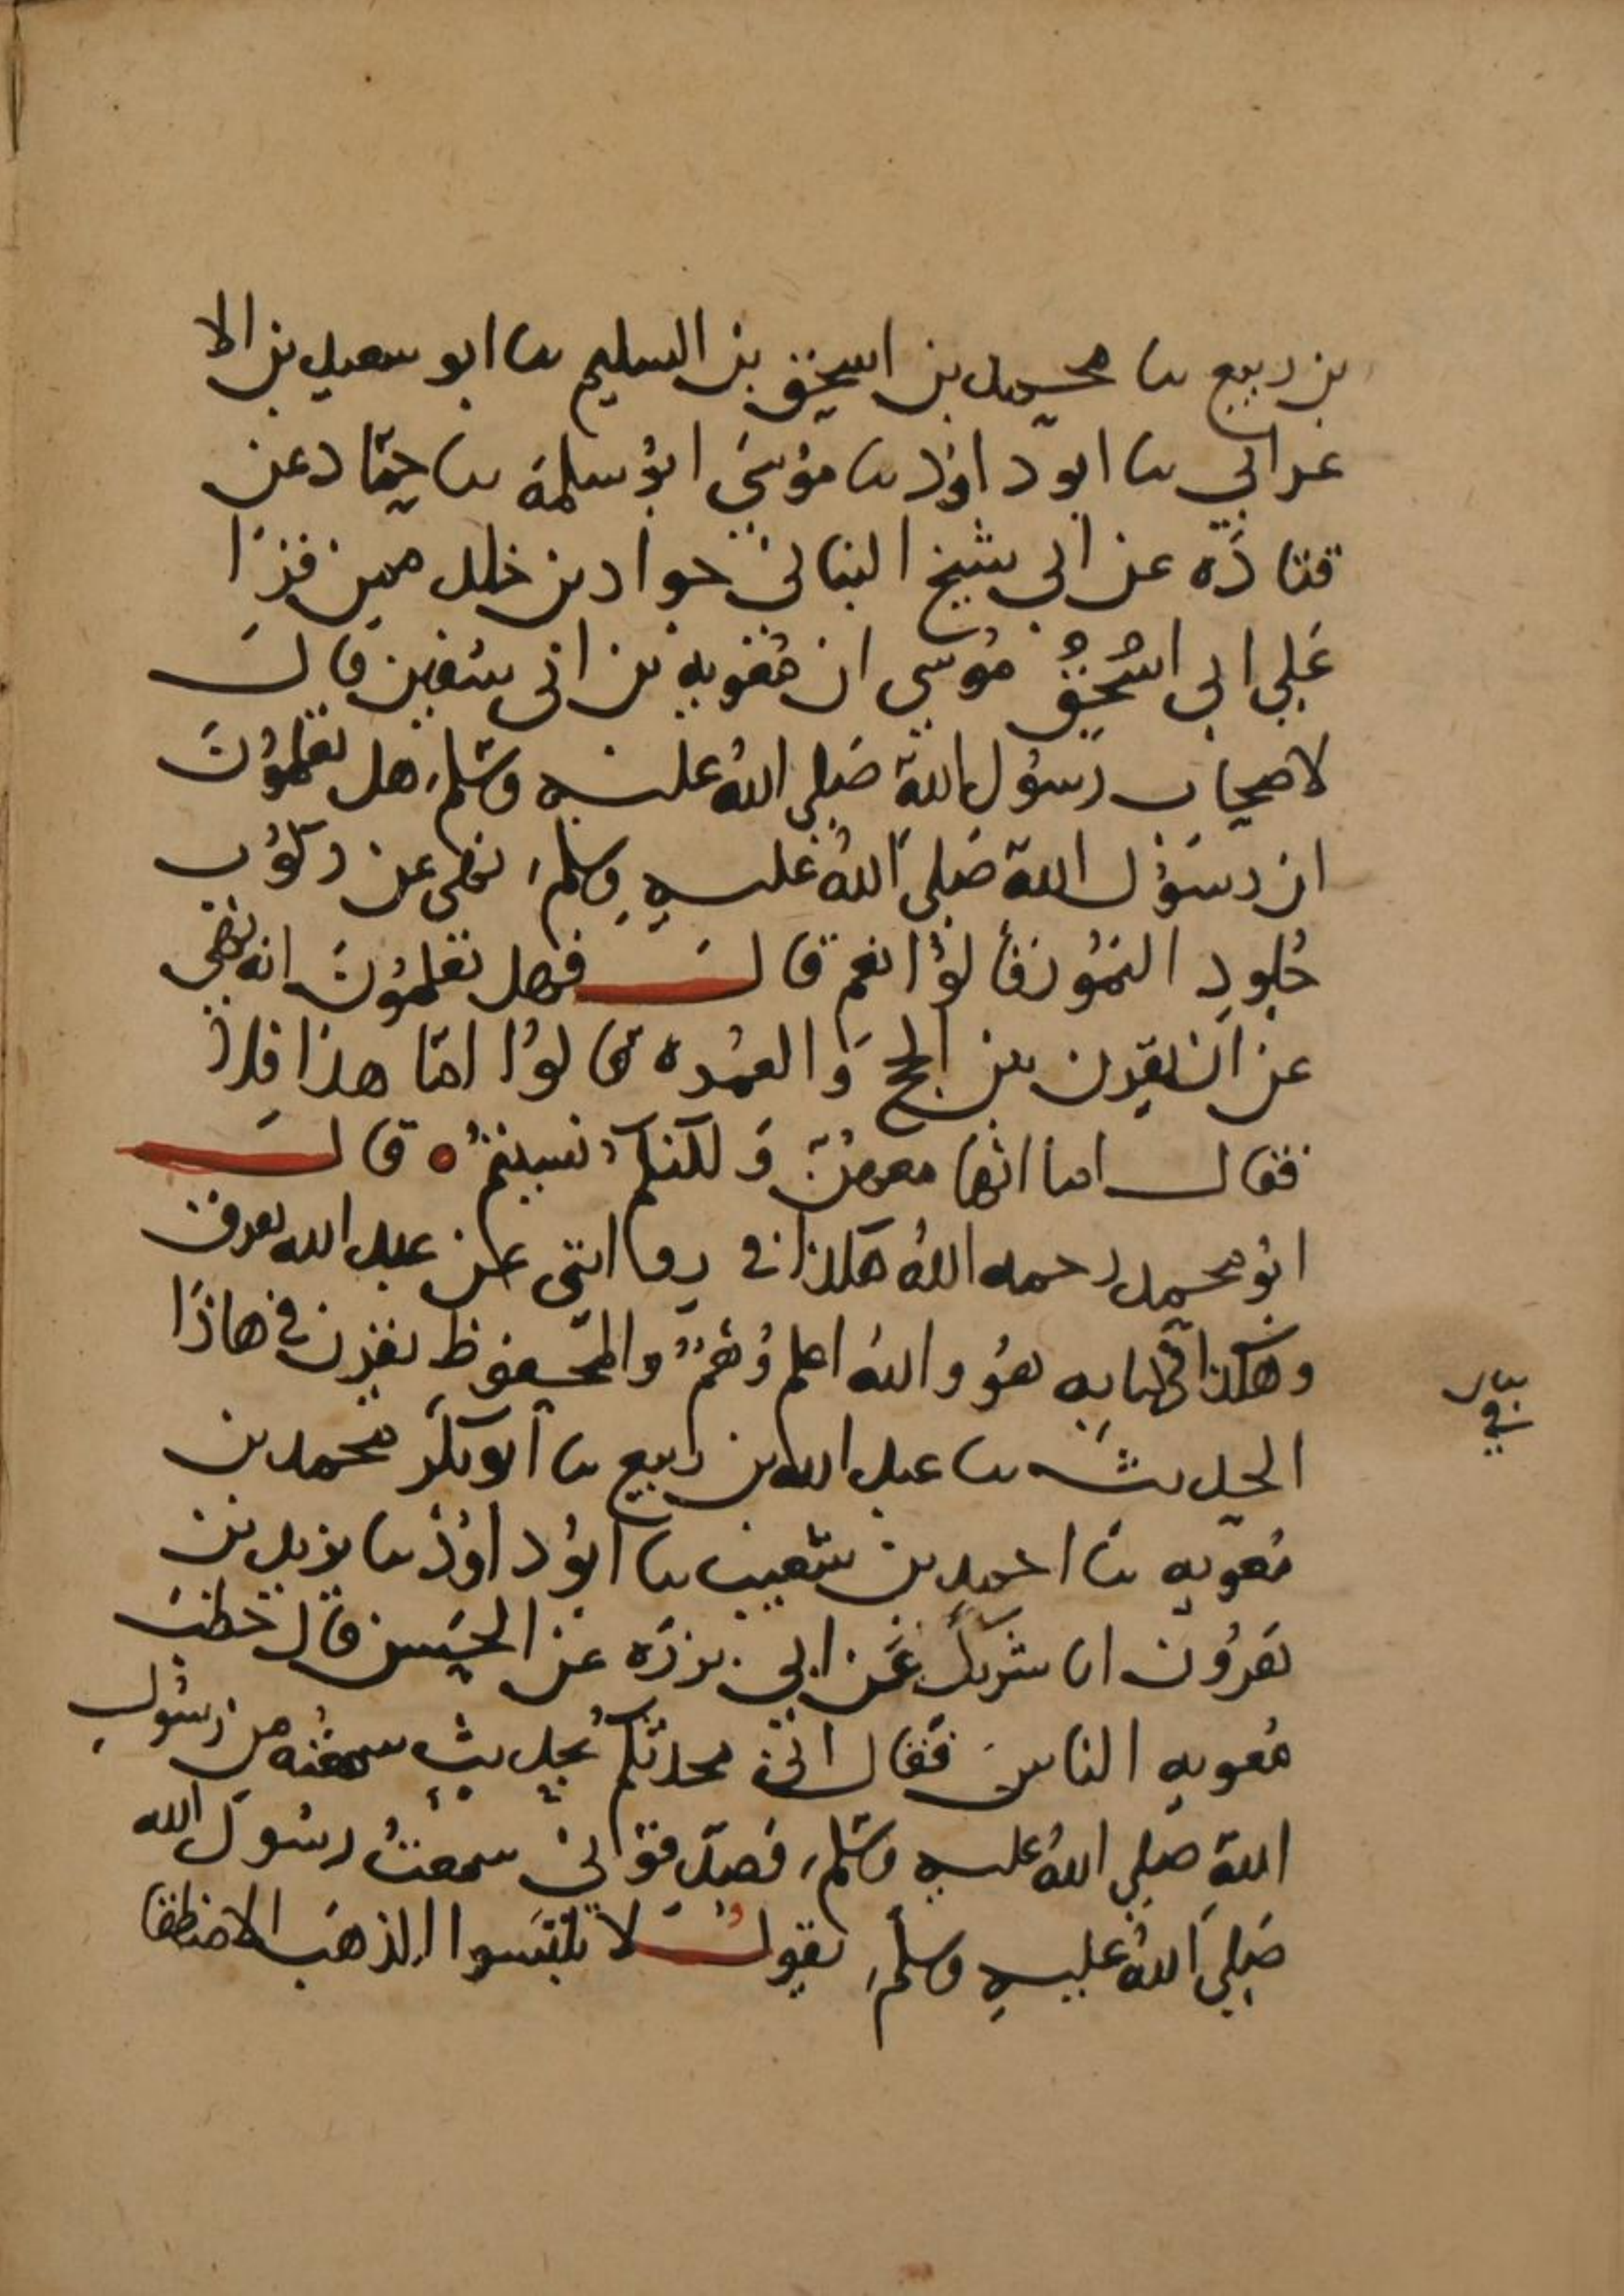 بن ربيع ثنا محمد بن اسحق بن السليم ثنا ابو سعيد بن الا
عرابي ثنا ابو داود ثنا موسَي ابو سلمة ثنا حمّاد عن
قتادَه عن ابي شيخ الهنائي خوان بن خلده ممن قرا
عَلي ابي اسْحق مُوسي ان مُعويه بن ابي سفين قالَ
لاصحاب رَسُول اللهِ صَلي اللهُ عليه وسَلم هل تعلمُونَ
ان رسَوُل اللهِ صَلي اللهُ عليهِ وسلم، نهى عن ركوُب
جُلودِ النمُور فَالوُا نعم قالَ فهل تعلمُونَ انه نهي
عن ان يقرن بين الحج وَالعمُره قالوُا امّا هذا فلا
فقال اما انها معهنّ وَلكنكمْ نسيتمْ ٥ قالَ
ابوُ محمد رحمه اللهُ هكذا في روايتي عن عبد الله يعرف
وهكذا في كتابه هوُ واللهُ اعلم وُهمٌ والمحفوظ يقرن في هاذَا
الحديث ثنا عبد الله بن ربيع ثنا ابو بكَر محمد بن
مُعويه ثنا احمد بن شعيب ثنا ابوُ داوُد ثنا يزيد بن
هَرُون انا شريكٌ عَن ابي فروَه عن الحسَن قال خطبَ
مُعويه الناسَ فقال انيّ محدثكمْ بحديثٍ سمعتُه من رسُولِ
اللهِ صَلي اللهُ عليهِ وسَلم، فصَدّقوُاني سمعتُ رسُولَ الله
صَلي اللهُ عليهِ وسلم، يقولُ لا تلبَسوا الذهبَ الامقطعًا